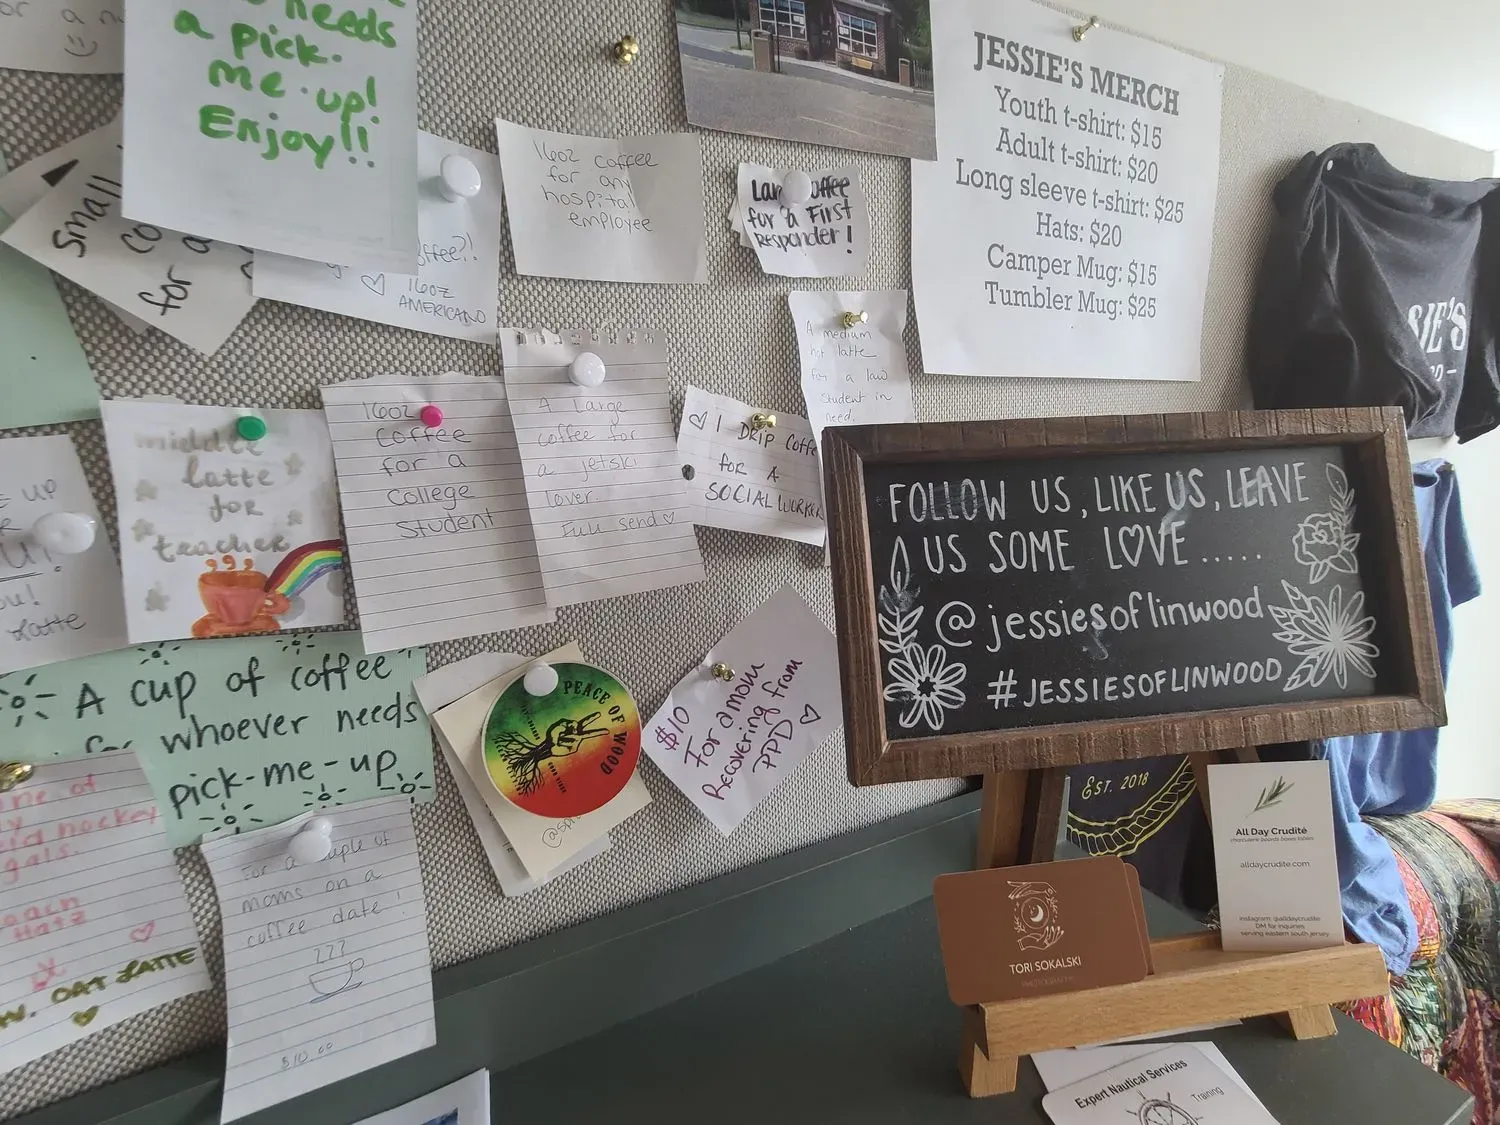 needs
a pick.
me-up!
Enjoy!!
small
for a
16oz
AMERICANO
16oz coffee
for any
hospital
employee
Large coffee
for a First
Responder!
JESSIE'S MERCH
Youth t-shirt: $15
Adult t-shirt: $20
Long sleeve t-shirt: $25
Hats: $20
Camper Mug: $15
Tumbler Mug: $25
A medium
hot latte
for a law
student in
need.
middle
latte
for
teacher
16oz
coffee
for a
college
student
A large
coffee for
a jetski
lover.
Full send
1 DRIP COFFE
FOR A
SOCIAL WORKER
UP
Latte
A cup of coffee
for whoever needs
pick-me-up
PEACE OF WOOD
$10
For a mom
Recovering from
PPD
hockey
gals.
OAT LATTE
For a couple of
moms on a
coffee date!
$10.00
FOLLOW US, LIKE US, LEAVE
US SOME LOVE.....
@jessiesoflinwood
#JESSIESOFLINWOOD
EST. 2018
All Day Crudité
charcuterie boards boxes tables
alldaycrudite.com
instagram: @alldaycrudite
DM for inquiries
serving eastern south jersey
TORI SOKALSKI
PHOTOGRAPHY
Expert Nautical Services
Training